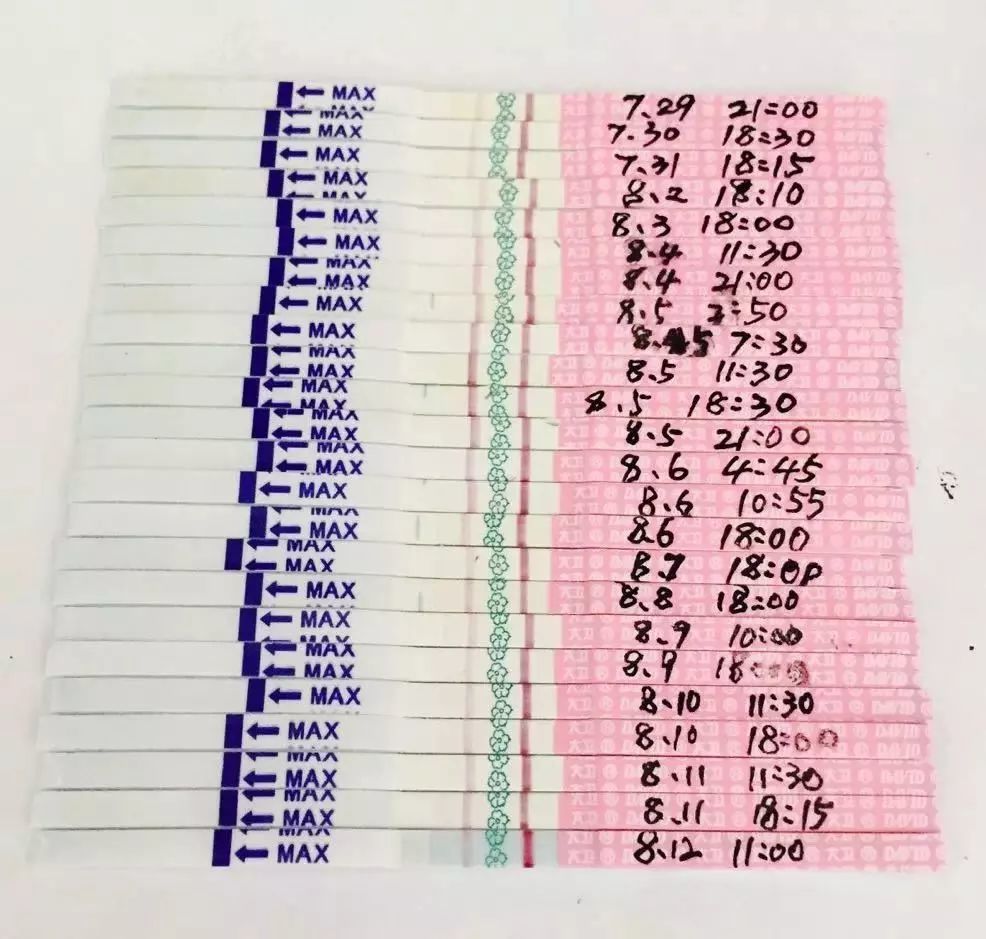 ← MAX 7.29 21:00
← MAX 7.30 18:30
← MAX 7.31 18:15
← MAX 8.2 18:10
← MAX 8.3 18:00
← MAX 8.4 11:30
← MAX 8.4 21:00
← MAX 8.5 :50
← MAX 8.5 7:30
← MAX 8.5 11:30
← MAX 8.5 18:30
← MAX 8.5 21:00
← MAX 8.6 4:45
← MAX 8.6 10:55
← MAX 8.6 18:00
← MAX 8.7 18:00
← MAX 8.8 18:00
← MAX 8.9 10:00
← MAX 8.9 18:00
← MAX 8.10 11:30
← MAX 8.10 18:00
← MAX 8.11 11:30
← MAX 8.11 18:15
← MAX 8.12 11:00 大卫 DAVID